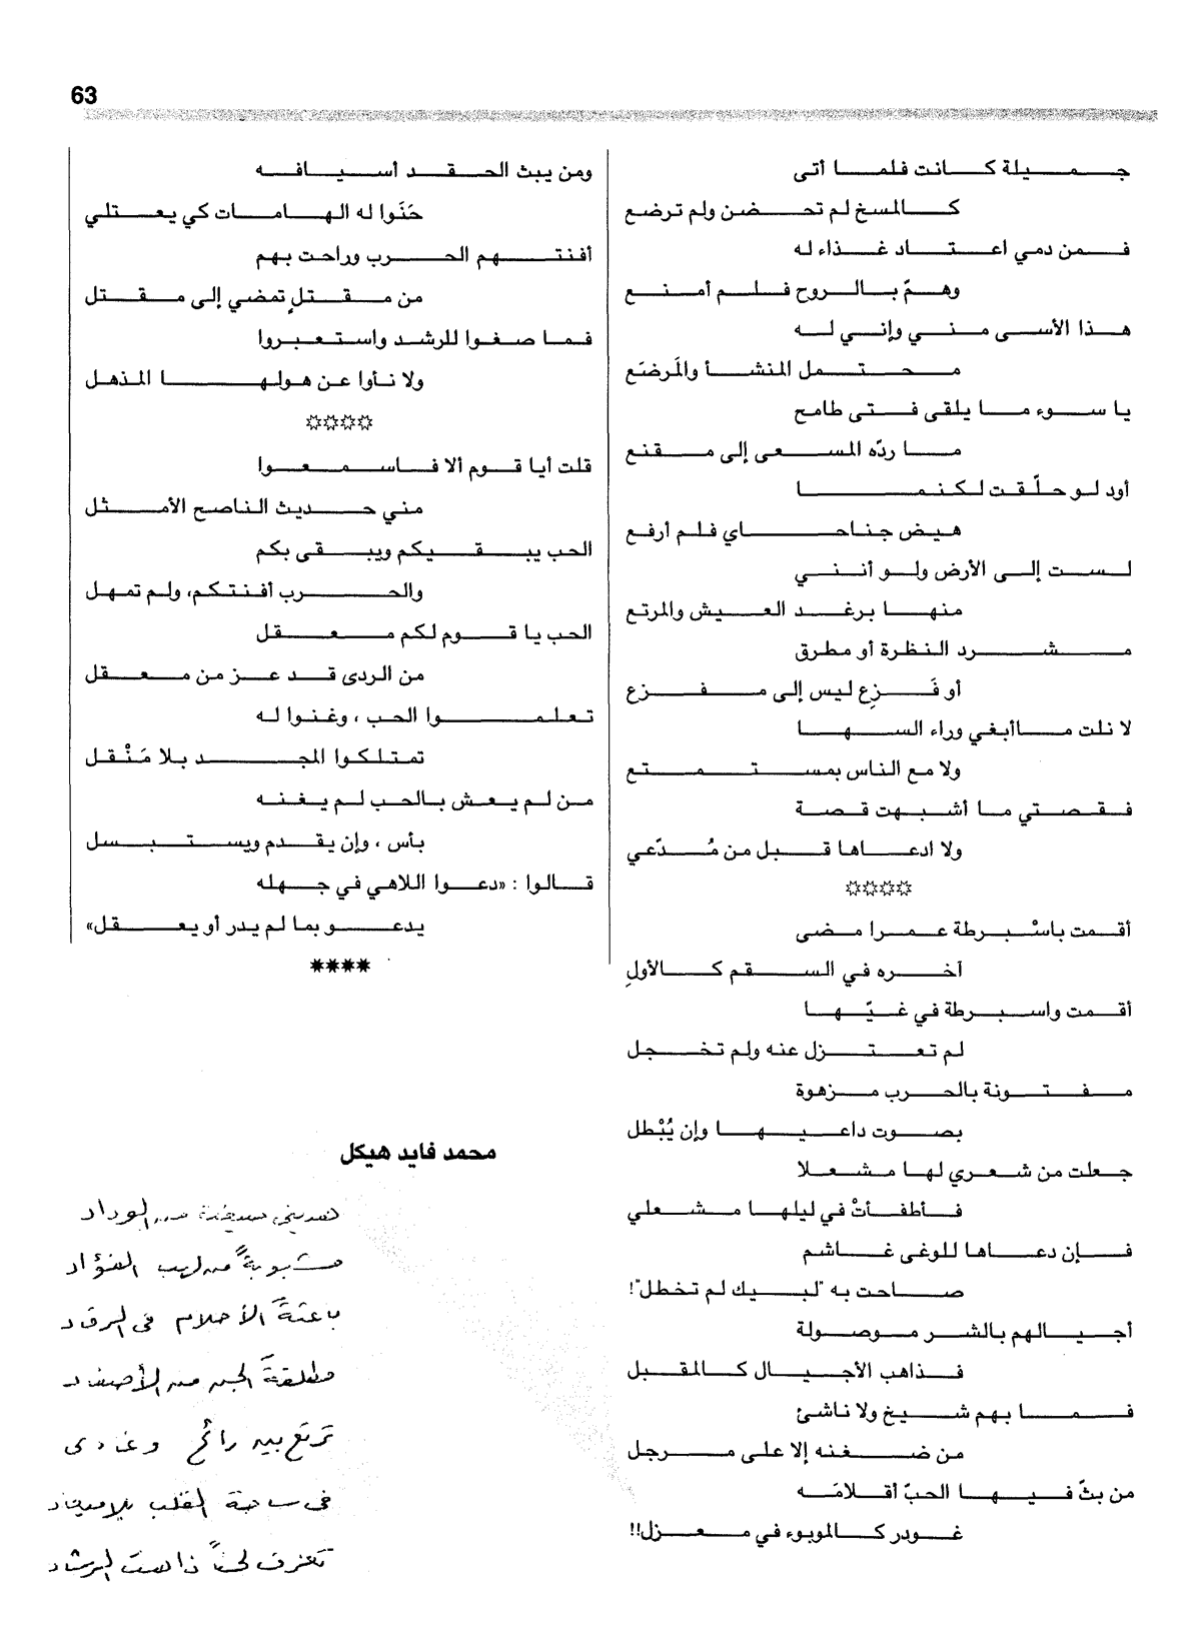 63
جميلة كانت فلما أتى
كالمسخ لم تحضن ولم ترضع
فمن دمي اعتاد غذاء له
وهمّ بالروح فلم أمنع
هذا الأسى مني وإني له
محتمل المنشأ والمَرضَع
يا سوء ما يلقى فتى طامح
ما ردّه المسعى إلى مقنع
أود لو حلّقت لكنما
هيض جناحاي فلم أرفع
لست إلى الأرض ولو أنني
منها برغد العيش والمرتع
مشرد النظرة أو مطرق
أو فَزِع ليس إلى مفزع
لا نلت ما أبغي وراء السها
ولا مع الناس بمستمتع
فقصتي ما أشبهت قصة
ولا ادعاها قبل من مُدّعي
☼☼☼☼
أقمت باسْبرطة عمرا مضى
آخره في السقم كالأولِ
أقمت واسبرطة في غيّها
لم تعتزل عنه ولم تخجل
مفتونة بالحرب مزهوة
بصوت داعيها وإن يُبْطل
جعلت من شعري لها مشعلا
فأطفأتْ في ليلها مشعلي
فإن دعاها للوغى غاشم
صاحت به "لبيك لم تخطل"!
أجيالهم بالشر موصولة
فذاهب الأجيال كالمقبل
فما بهم شيخ ولا ناشئ
من ضغنه إلا على مرجل
من بثّ فيها الحبّ أقلامَه
غودر كالموبوء في معزل!!
ومن يبث الحقد أسيافه
حَنَوا له الهامات كي يعتلي
أفنتهم الحرب وراحت بهم
من مقتلٍ تمضي إلى مقتل
فما صغوا للرشد واستعبروا
ولا نأوا عن هولها المذهل
☼☼☼☼
قلت أيا قوم ألا فاسمعوا
مني حديث الناصح الأمثل
الحب يبقيكم ويبقى بكم
والحرب أفنتكم، ولم تمهل
الحب يا قوم لكم معقل
من الردى قد عز من معقل
تعلموا الحب ، وغنوا له
تمتلكوا المجد بلا مَنْقل
من لم يعش بالحب لم يغنه
بأس ، وإن يقدم ويستبسل
قالوا : «دعوا اللاهي في جهله
يدعو بما لم يدر أو يعقل»
****
محمد فايد هيكل
من الوداد
مشبوبةً من لهيب الفؤاد
باعثةَ الأحلام فى الرقاد
مطلقةَ الحب من الأصفاد
تَرتَع بين رائحٍ وغادى
فى ساحة القلب
تعزف لحناً الرشاد